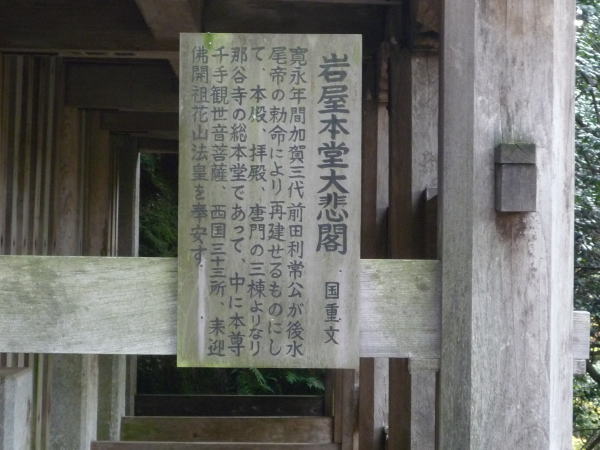 岩屋本堂大悲閣 国重文
寛永年間加賀三代前田利常公が後水
尾帝の勅命により再建せるものにし
て、本殿、拝殿、唐門の三棟よりなり
那谷寺の総本堂であって、中に本尊
千手観世音菩薩、西国三十三所、来迎
佛開祖花山法皇を奉安す